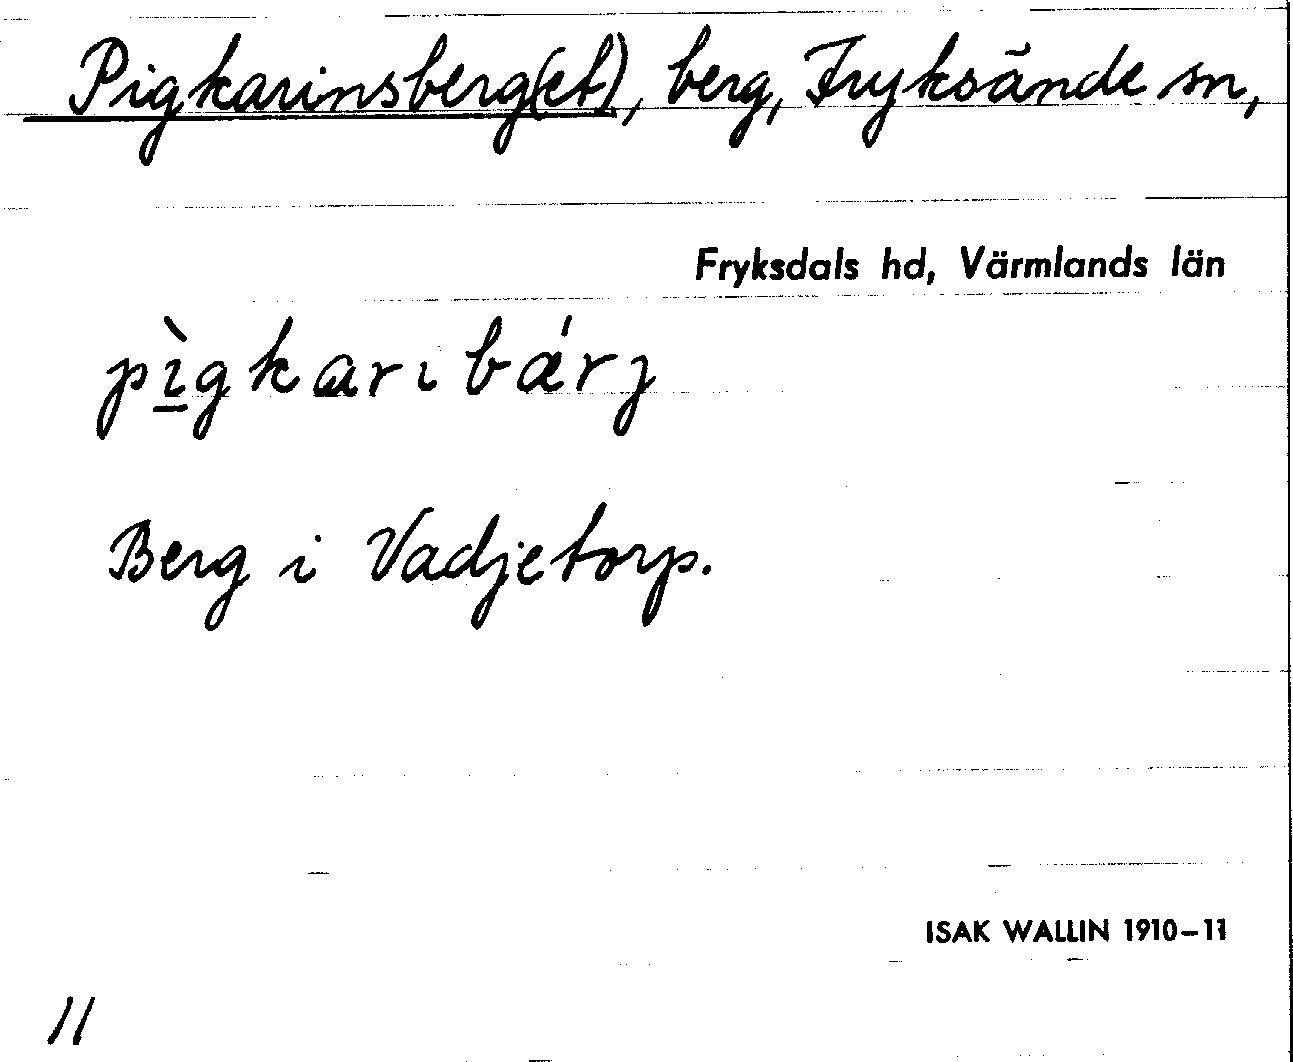 Pigkarinsberg(et), berg, Fryksände sn,
Fryksdals hd, Värmlands län
pìgkarıbǽrj
Berg i Vadjetorp.
ISAK WALLIN 1910–11
11